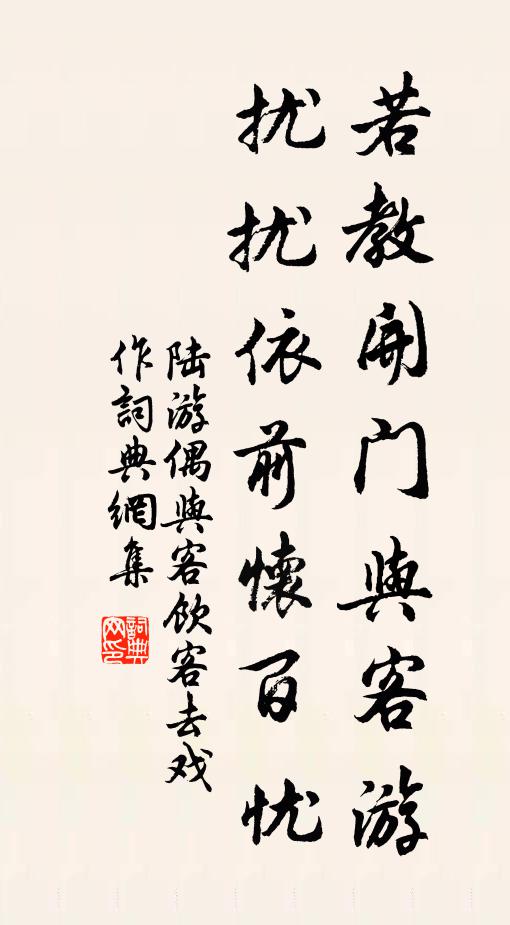 若教開门與客游
扰扰依前懷百忧
陆游偶與客饮客去戏
作詞典網集
詞典网印